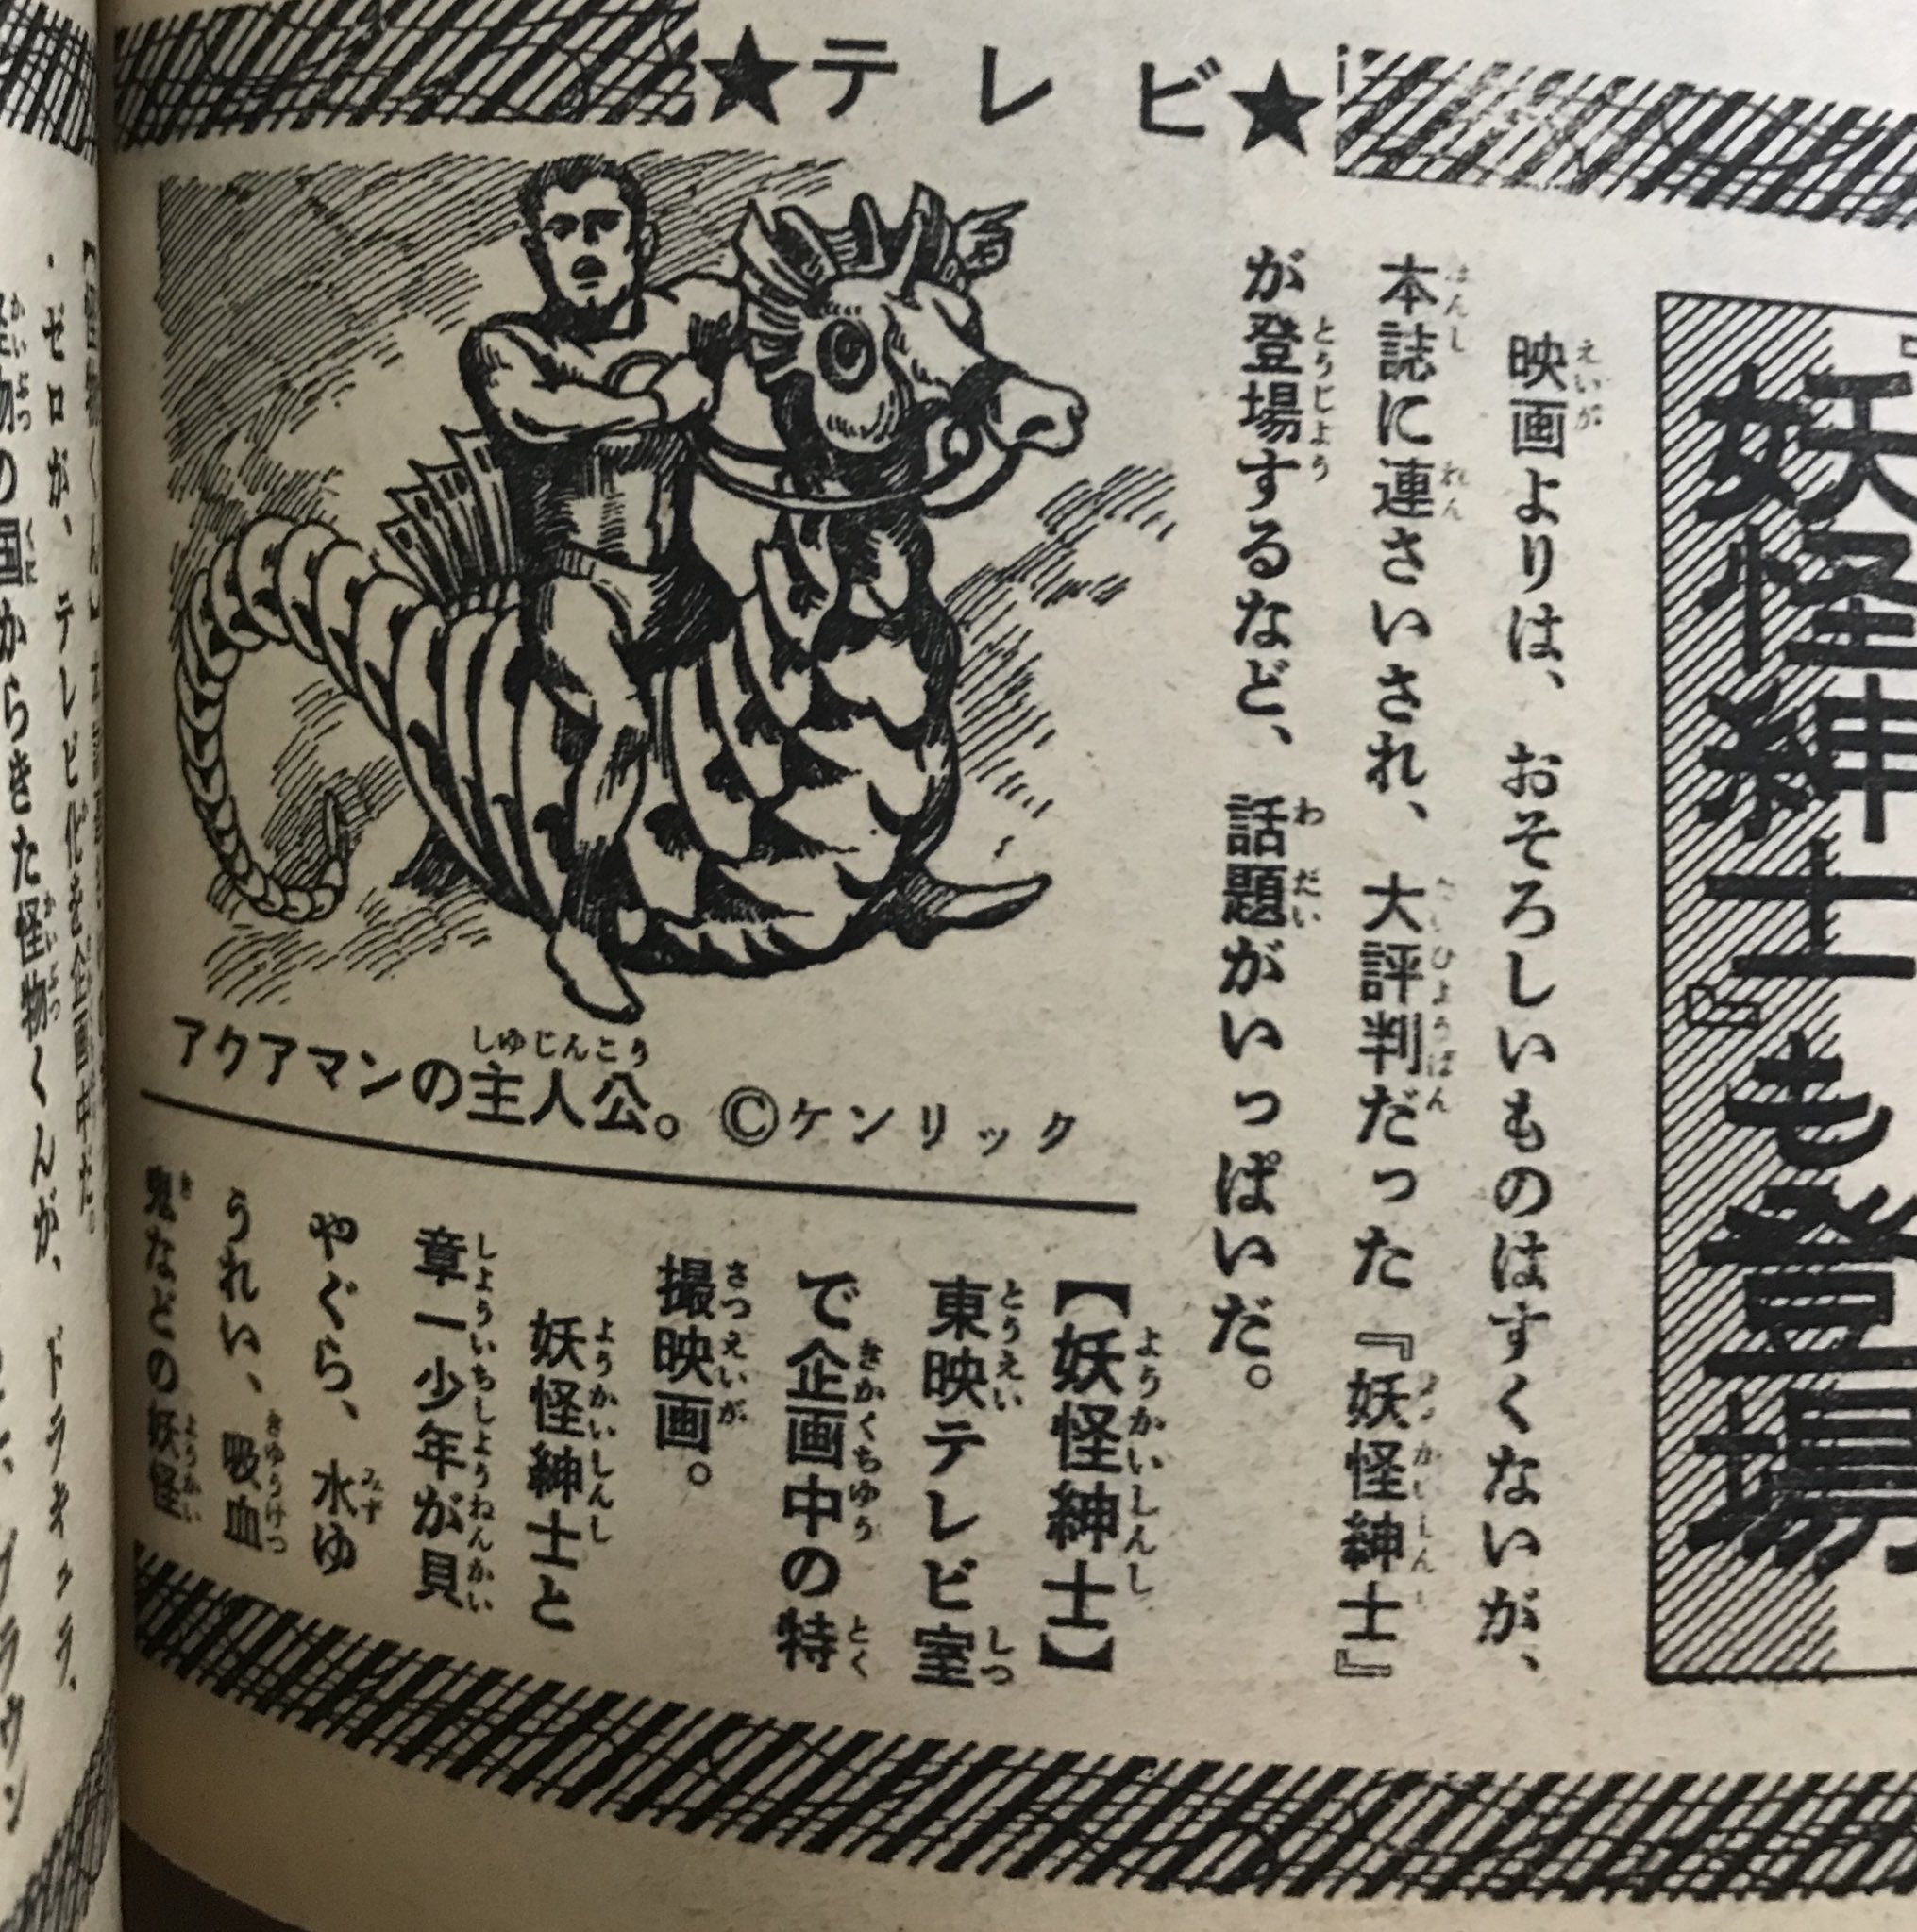 ★テレビ★
『妖怪紳士』も登場
映画よりは、おそろしいものはすくないが、
本誌に連さいされ、大評判だった『妖怪紳士』
が登場するなど、話題がいっぱいだ。
アクアマンの主人公。©ケンリック
【妖怪紳士】
東映テレビ室
で企画中の特
撮映画。
妖怪紳士と
章一少年が貝
やぐら、水ゆ
うれい、吸血
鬼などの妖怪
・ゼロが、テレビ化を企画中だ。
怪物の国からきた怪物くんが、ドラキュラ、